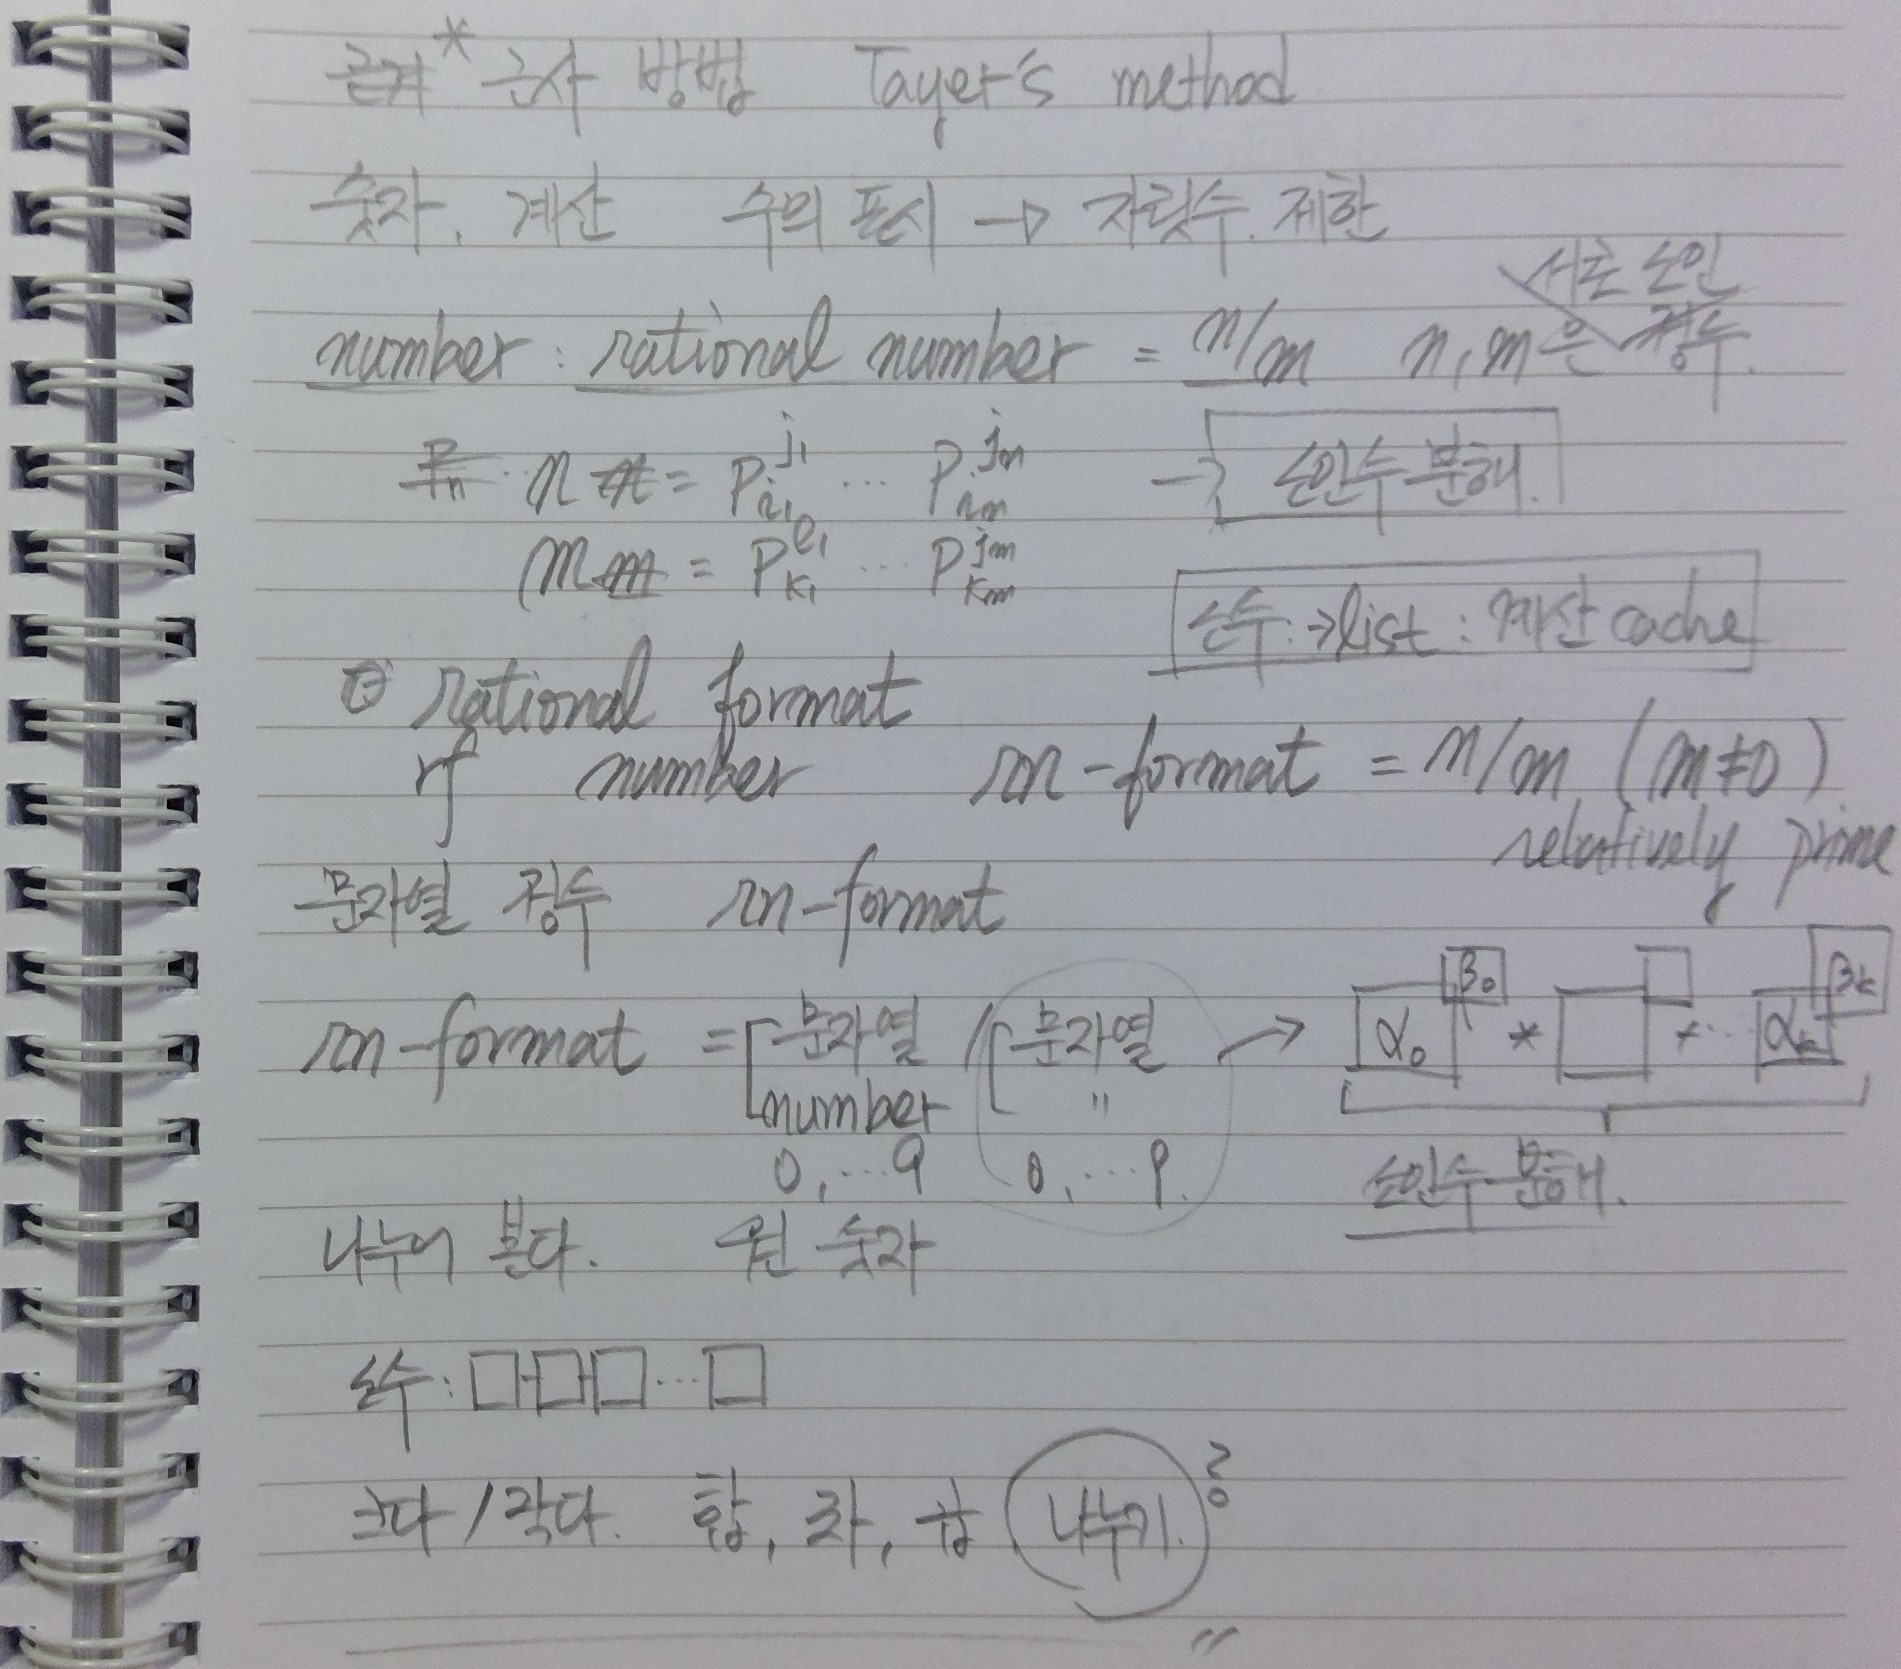 * 근사 방법 Tayer's method
숫자. 계산 수의 표시 → 자릿수. 제한
서로 소인
number : rational number = n/m n, m은 정수.
n = P_{i_1}^{j_1} ... P_{i_n}^{j_n} → 소인수분해.
m = P_{k_1}^{e_1} ... P_{k_m}^{j_m}
소수 : → list : 계산 cache
rational format
rf number rn-format = n/m (m≠0)
relatively prime
문자열 정수 rn-format
rn-format = [문자열 / [문자열 → α₀^{β₀} * □^□ * ... α_k^{β_k}
number "
0, ... 9 0, ... 9. 소인수분해.
나누어 본다. 숫자
소수 : □□□...□
크다 / 작다. 합, 차, 곱 나누기. ?
"